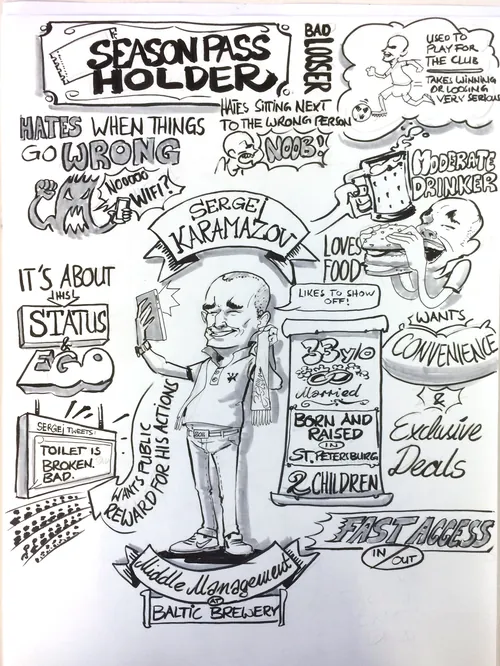 SEASON PASS
HOLDER
BAD
LOOSER
USED TO
PLAY FOR
THE CLUB
TAKES WINNING
OR LOOSING
VERY SERIOUS
HATES WHEN THINGS
GO WRONG
NOOOOO
WIFI?!
HATES SITTING NEXT
TO THE WRONG PERSON
NOOB!
MODERATE
DRINKER
SERGEI
KARAMAZOV
LOVES
FOOD
LIKES TO SHOW
OFF!
IT'S ABOUT
(HIS)
STATUS
&
EGO
WANTS
CONVENIENCE
&
Exclusive
Deals
33 y/o
Married
BORN AND
RAISED
IN
ST. PETERSBURG
2 CHILDREN
SERGEI TWEETS:
TOILET IS
BROKEN.
BAD.
WANTS PUBLIC
REWARD FOR HIS ACTIONS
FAST ACCESS
IN / OUT
Middle Management
AT
BALTIC BREWERY